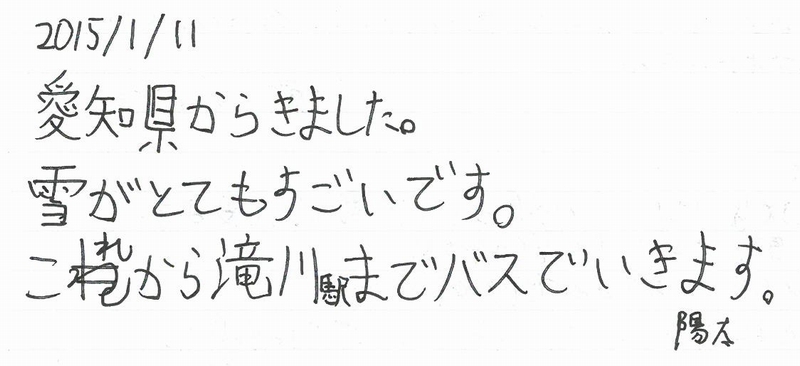 2015/1/11
愛知県からきました。
雪がとてもすごいです。
これから滝川駅までバスでいきます。
陽太